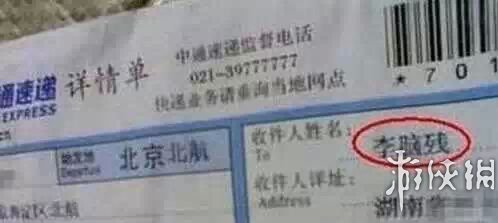 通速递 详情单
EXPRESS
中通速递监督电话
021-39777777
快递业务请垂询当地网点
*701
始发地 北京北航
Departus
收件人姓名: 李脑残
To
收件人详址: 湖南省
Address
海淀区北航
游侠网